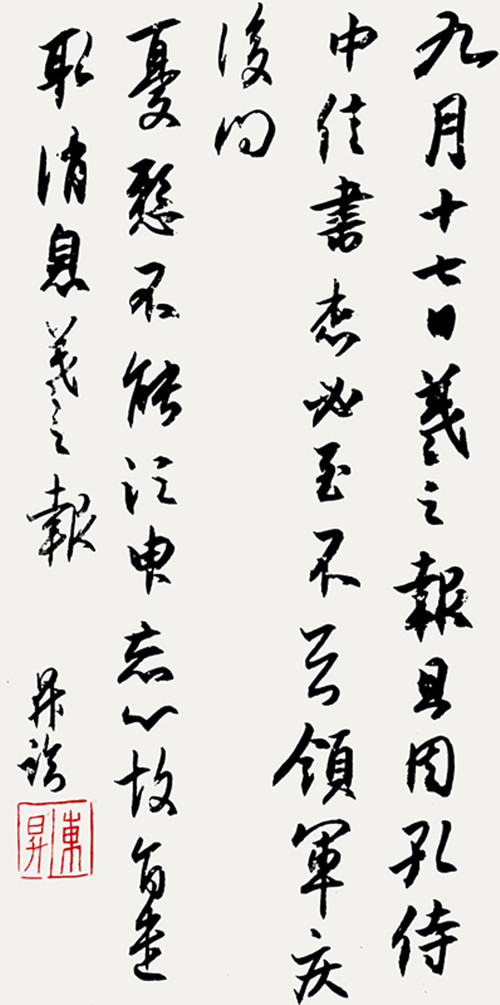 九月十七日羲之報且因孔侍
中信書想必至不知領軍疾
後問
憂懸不能須臾忘心故旨遣
取消息羲之報
昇
東昇